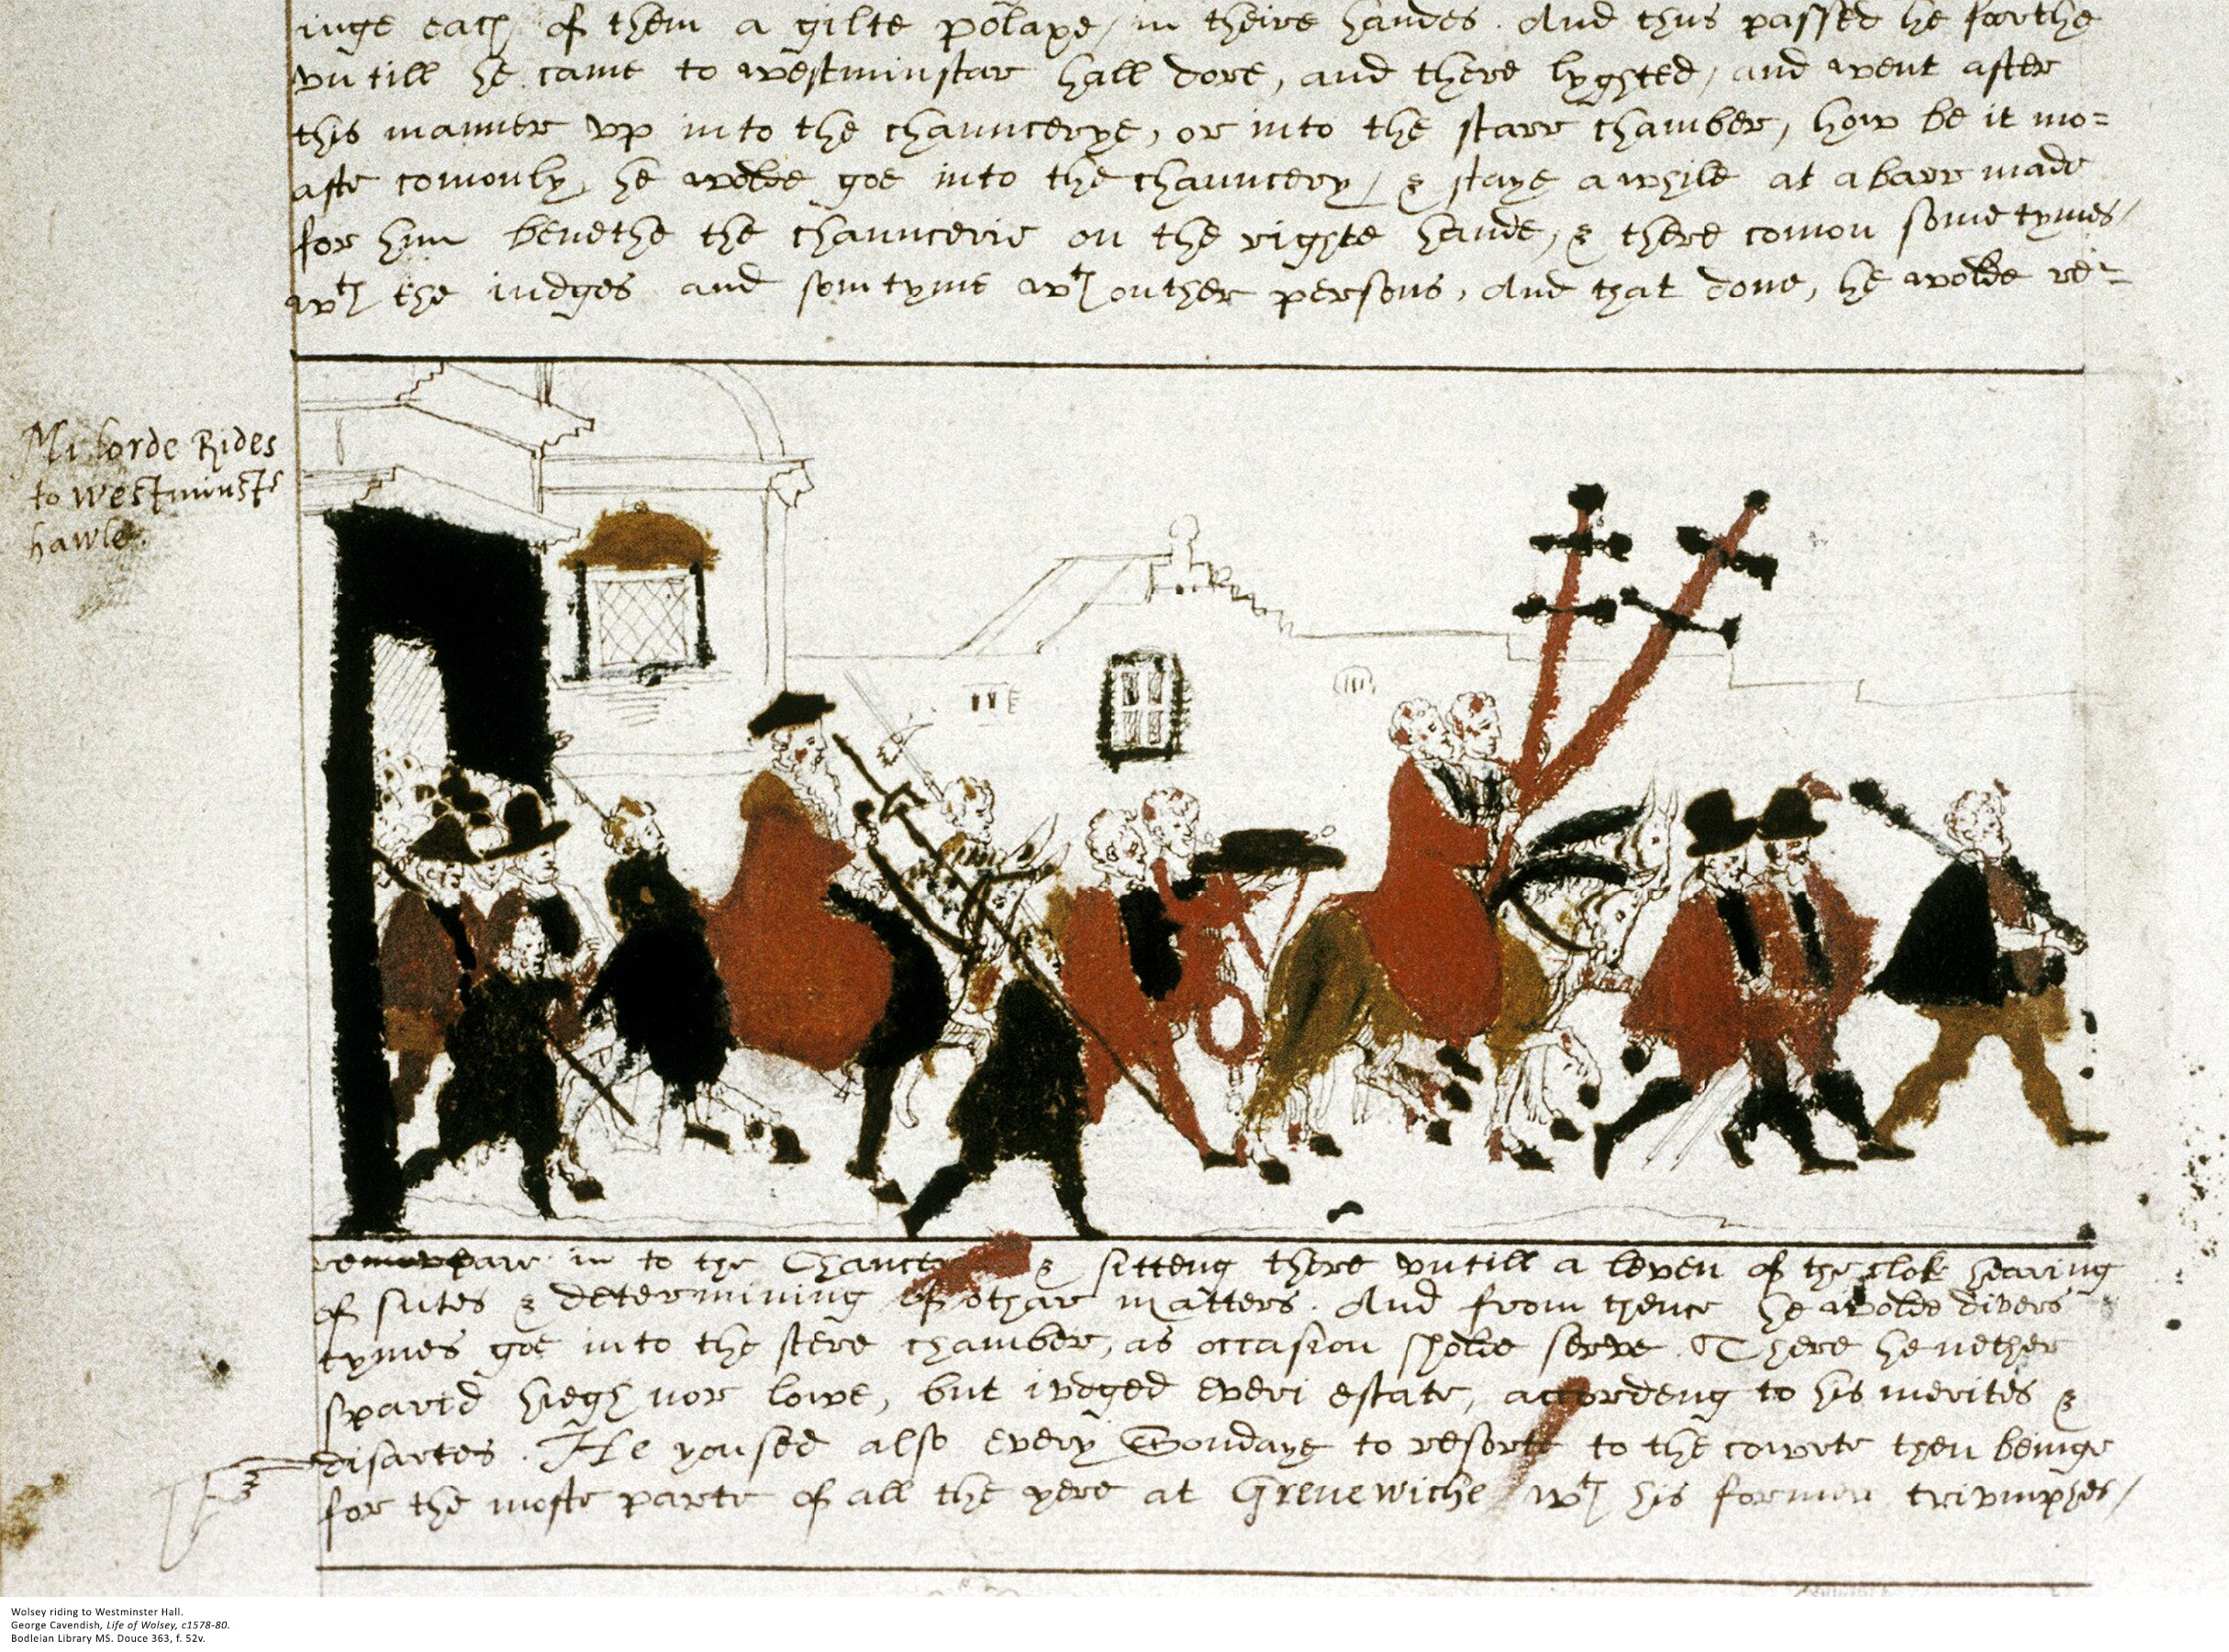 inge each of them a gilte polaxe / in theire handes. And thus passed he foorthe
vntill he came to westminstar hall dore, and there lyghted / and went after
this manner vp into the chauncerye, or into the starr chamber, how be it mo=
aste comonly, he wolde goe into the chauncery / & staye a while at a barr made
for him benethe the chauncerie on the righte hande, & there comon some tymes /
wth the iudges and somtyme wth outher persons, And that done, he wolde re=
Mi lorde Rides
to westminstr
hawle.
pare in to the & sitteng there vntill a leven of the clok hearing
of sutes & determining of othar matters. And from thence he wolde divers
tymes goe into the stere chamber, as occasion sholde serve. There he nether
sparid hiegh nor lowe, but ivdged everi estate, accordeng to his merites &
disartes. He yousee also every Sondaye to resorte to the cowrte then beinge
for the moste parte of all the yere at Grenewiche / wth his former trivmphes /
Wolsey riding to Westminster Hall.
George Cavendish, Life of Wolsey, c1578-80.
Bodleian Library MS. Douce 363, f. 52v.